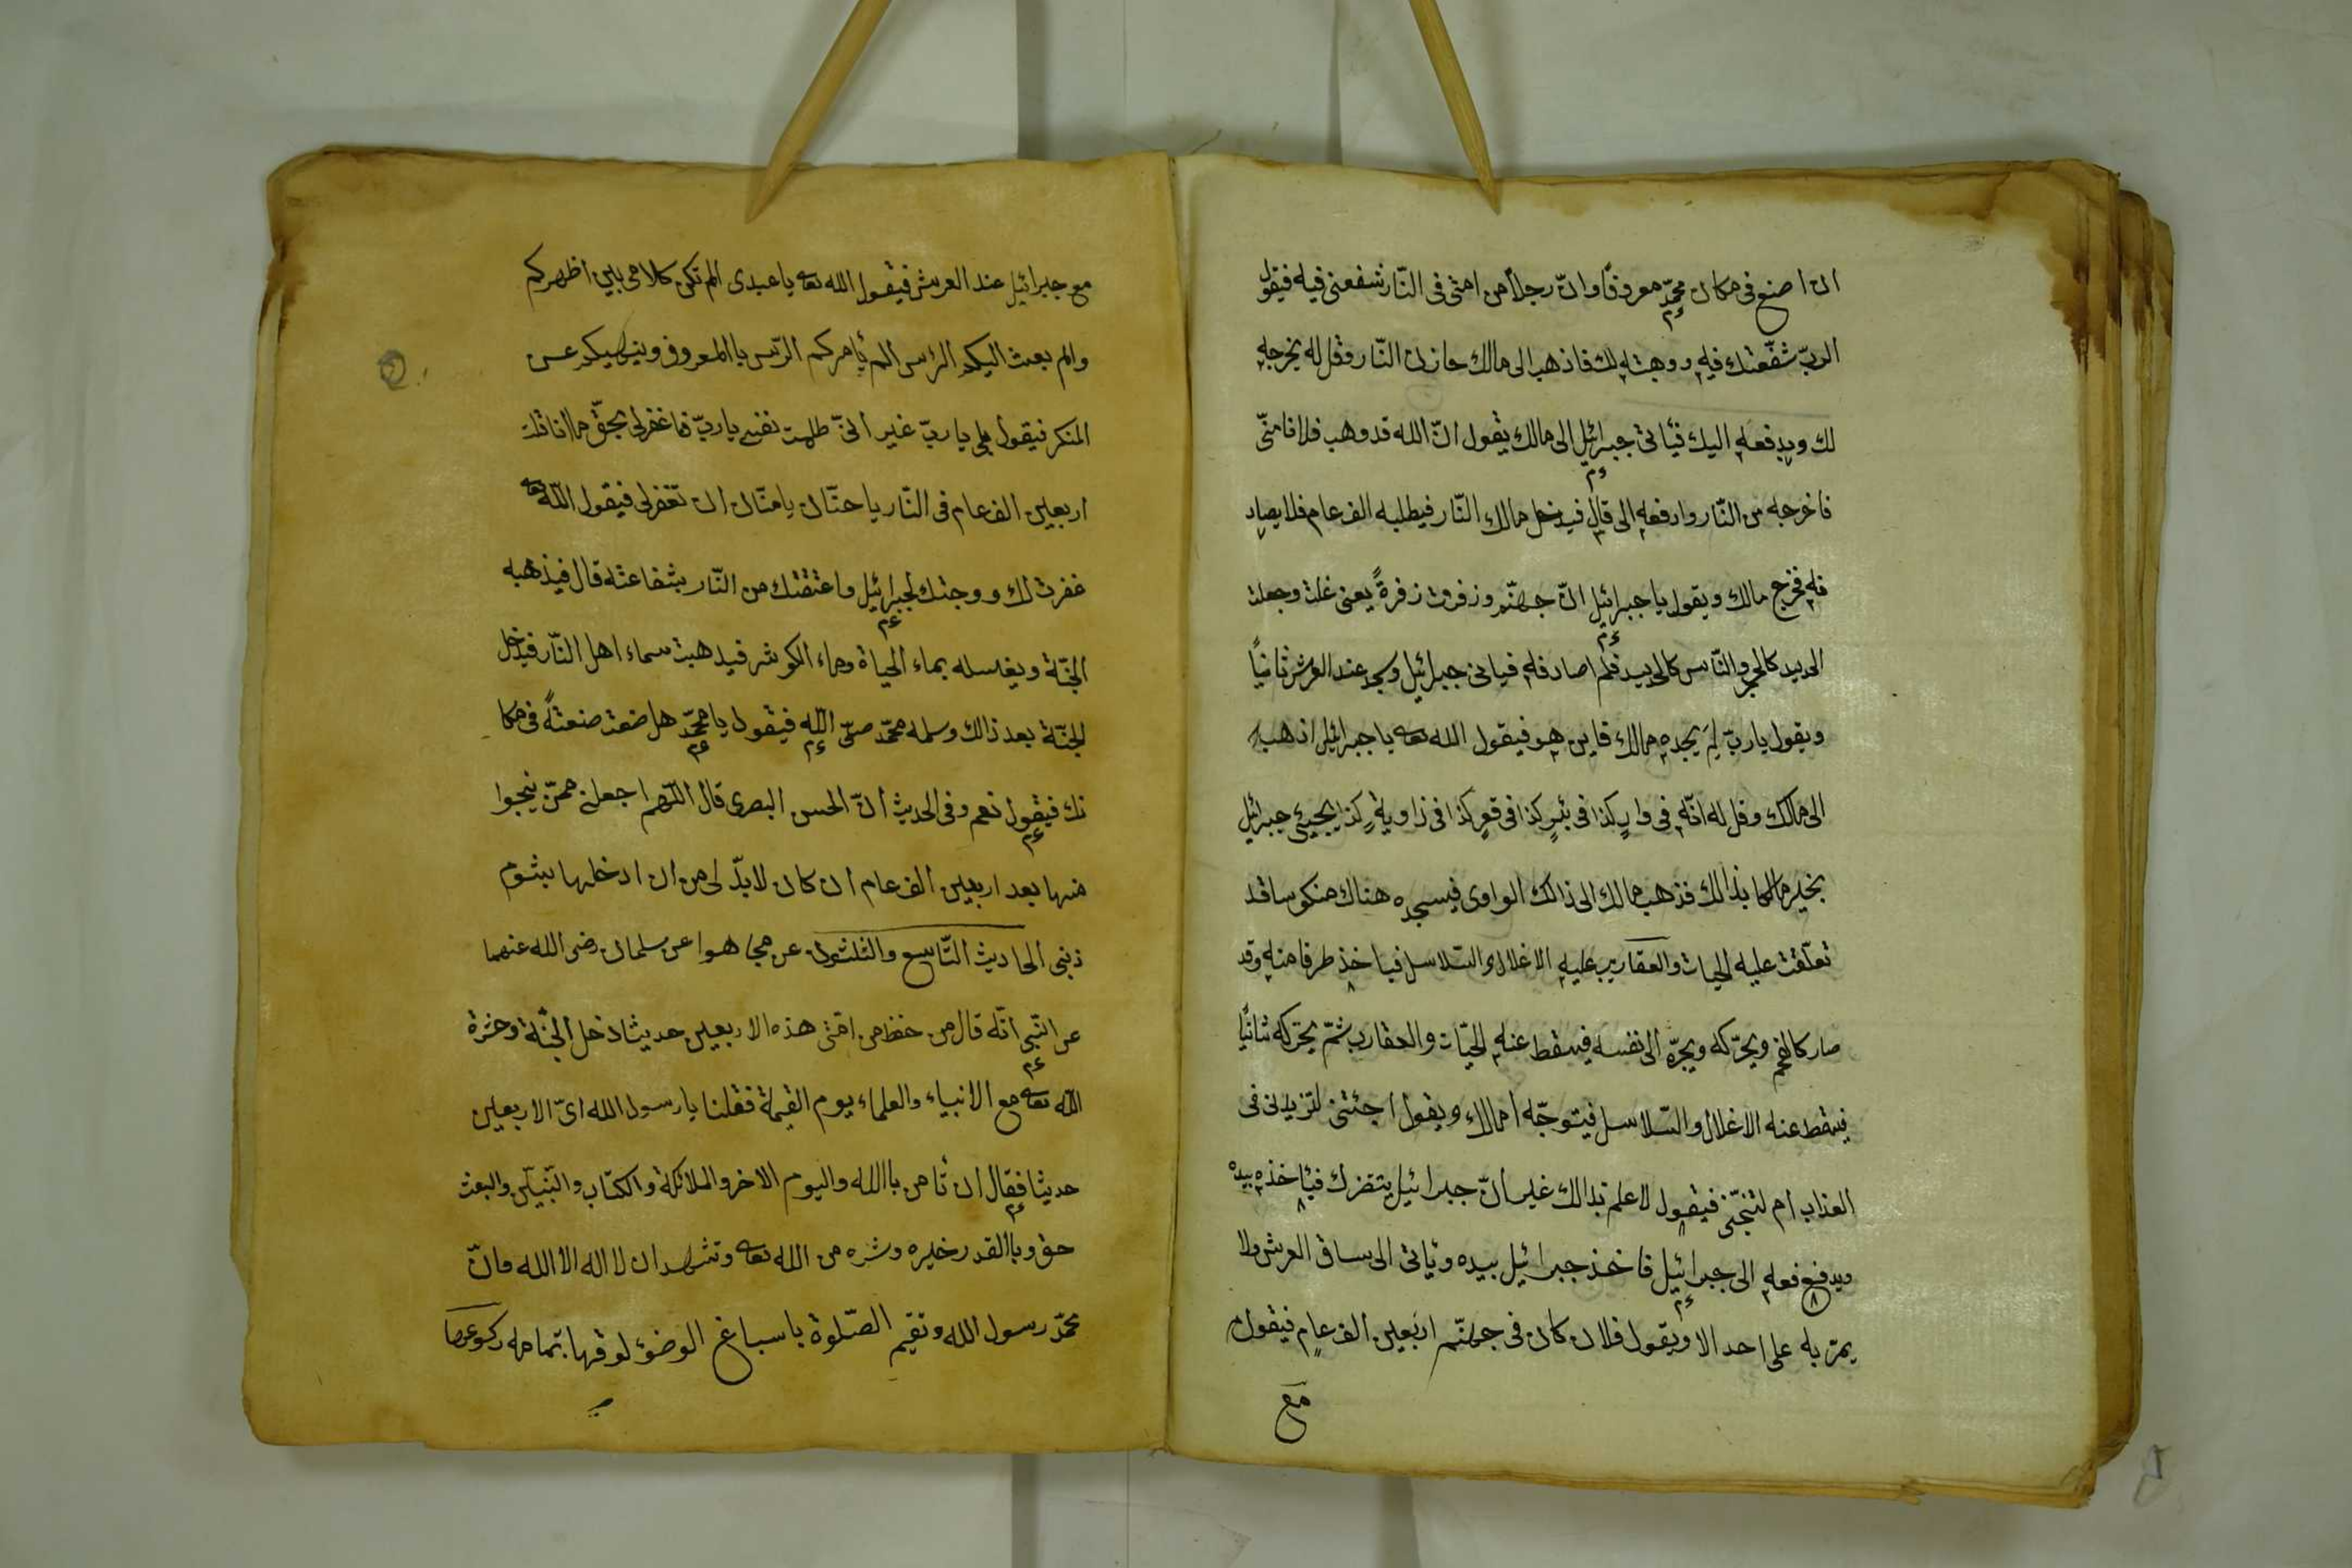 ان اصنع فى مكان محمّدٍ معروفًا وانّ رجلاً من امتى فى النّار شفعنى فيه فيقول
الربّ شفّعتك فيه ووهبته لك فاذهب الى مالك خازن النّار وقل له يخرجه
لك ويدفعه اليك فيأتى جبرائيل الى مالك يقول انّ الله قد وهب فلانا منّى
فاخرجه من النّار وادفعه الى قال فيدخل مالك النّار فيطلبه الف عام فلا يصاد
فه فخرج مالك ويقول يا جبرائيل انّ جهنّم وزفرت زفرةً يعنى غلت وجعلت
الحديد كالحجر والنّاس كالحديد فلم اصادفه فياتى جبرائيل وسجد عند العرش ثانيًا
ويقول يا ربّ لِمَ يجده مالك فاين هو فيقول الله تعه يا جبرائيل اذهب
الى مالك وقل له انّه فى وادٍ كذا فى بئرٍ كذا فى قعرٍ كذا فى زاويةٍ كذا يجيئ جبرائيل
بخبر مالكا بذالك فذهب مالك الى ذالك الوادى فيسجده هناك منكوسا قد
تعلّقت عليه الحيات والعقارب عليه الاغلال والسّلاسل فياخذ طرفا منه وقد
صار كالفحم ويحرّكه ويجرّه الى نفسه فيسقط عنه الحيّات والعقارب ثمّ يحرّكه ثانيًا
فيسقط عنه الاغلال والسّلاسل فيتوجّه امالك ويقول اجئتنى لتزيدنى فى
العذاب ام لتنجّى فيقول لا علم بذالك غير انّ جبرائيل ينتظرك فيأخذه بيده
ويدفع فعه الى جبرائيل فاخذ جبرائيل بيده ويأتى الى ساق العرش ولا
يمرّ به على احد الا ويقول فلان كان فى جهنّم اربعين الف عامٍ فيقول
مع
مع جبرائيل عند العرش فيقول الله تعه يا عبدى الم تكن كلامى بين اظهركم
والم بعث اليكم الرسل الم يأمركم الرّسل باالمعروف وينهيكم عن
المنكر فيقول بلى يا ربّ غير انّى ظلمت نفسى يا ربّ فاغفرلى بحقّ ما اناقك
اربعين الف عام فى النّار يا حنّان يا منّان ان تغفرلى فيقول الله تعه
غفرت لك ووجتك لجبرائيل واعتقتك من النّار بشفاعته قال فيذهبه
الجنّة ويغسله بماء الحياة وماء الكوثر فيذهبت سماء اهل النّار فيدخل
الجنّة بعد ذالك وسلمه محمّد صلّى الله فيقول يا محمّد هل ضعت صنعةً فى مكا
نك فيقول نعم وفى الحديث انّ الحسن البصرى قال اللّهم اجعلنى ممّن ينجوا
منها بعد اربعين الف عام ان كان لا بدّ لى من ان ادخلها بشوم
ذنبى الحاديث التّاسع والثلثون عن مجاهوا عن سلمان رضى الله عنهما
عن النّبى انّه قال من حفظ من امّتى هذه الاربعين حديثا دخل الجنّة وحشرة
الله تعه مع الانبياء والعلماء يوم القيمة فقلنا يا رسول الله اىّ الاربعين
حديثا فقال ان تأمن باالله واليوم الاخر والملائكة والكتاب والنّبيّن والبعث
حق وباالقدر خيره وشره من الله تعه وتشهد ان لا اله الا الله وانّ
محمّد رسول الله وتقيم الصّلوة باسباغ الوضوء لوقتها بتمامه ركوعها